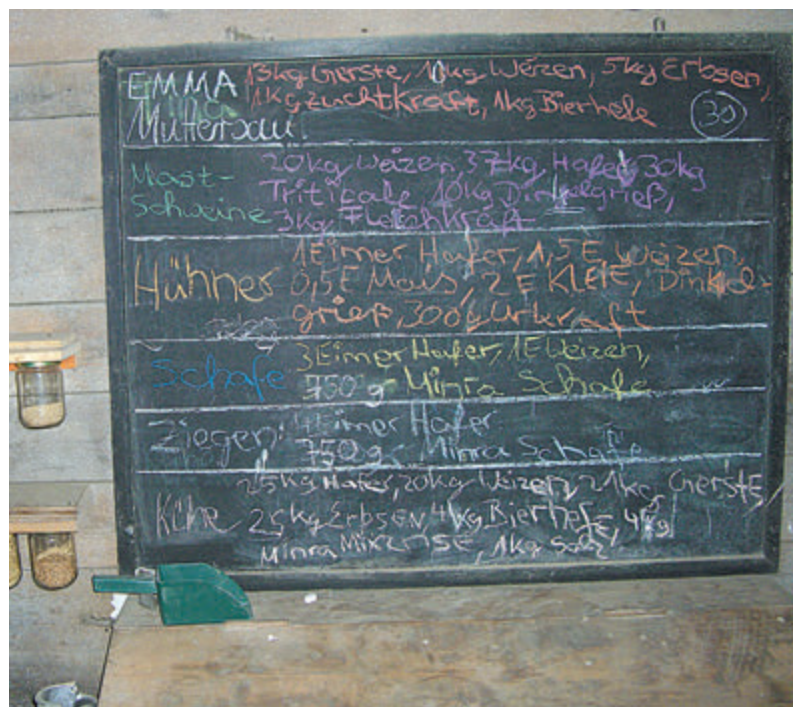 EMMA 13kg Gerste, 10kg Weizen, 5kg Erbsen,
1kg Zuchtkraft, 1kg Bierhefe
Muttersau
30
Mast- 20kg Weizen, 37kg Hafer, 30kg
Schweine Triticale, 10kg Dinkelgrieß,
3kg
Hühner 1Eimer Hafer, 1,5 E. Weizen,
0,5E Mais, 2 E KLEIE, Dinkel-
grieß, 300g Urkraft
Schafe 3Eimer Hafer, 1E Weizen,
750 g Minra Schafe
Ziegen: 4Eimer Hafer
750 g Minra Schafe
Kühe 25kg Hafer, 20kg Weizen, 21kg Gerste,
25kg Erbsen, 4kg Bierhefe, 4kg
Minra, 1kg Salz